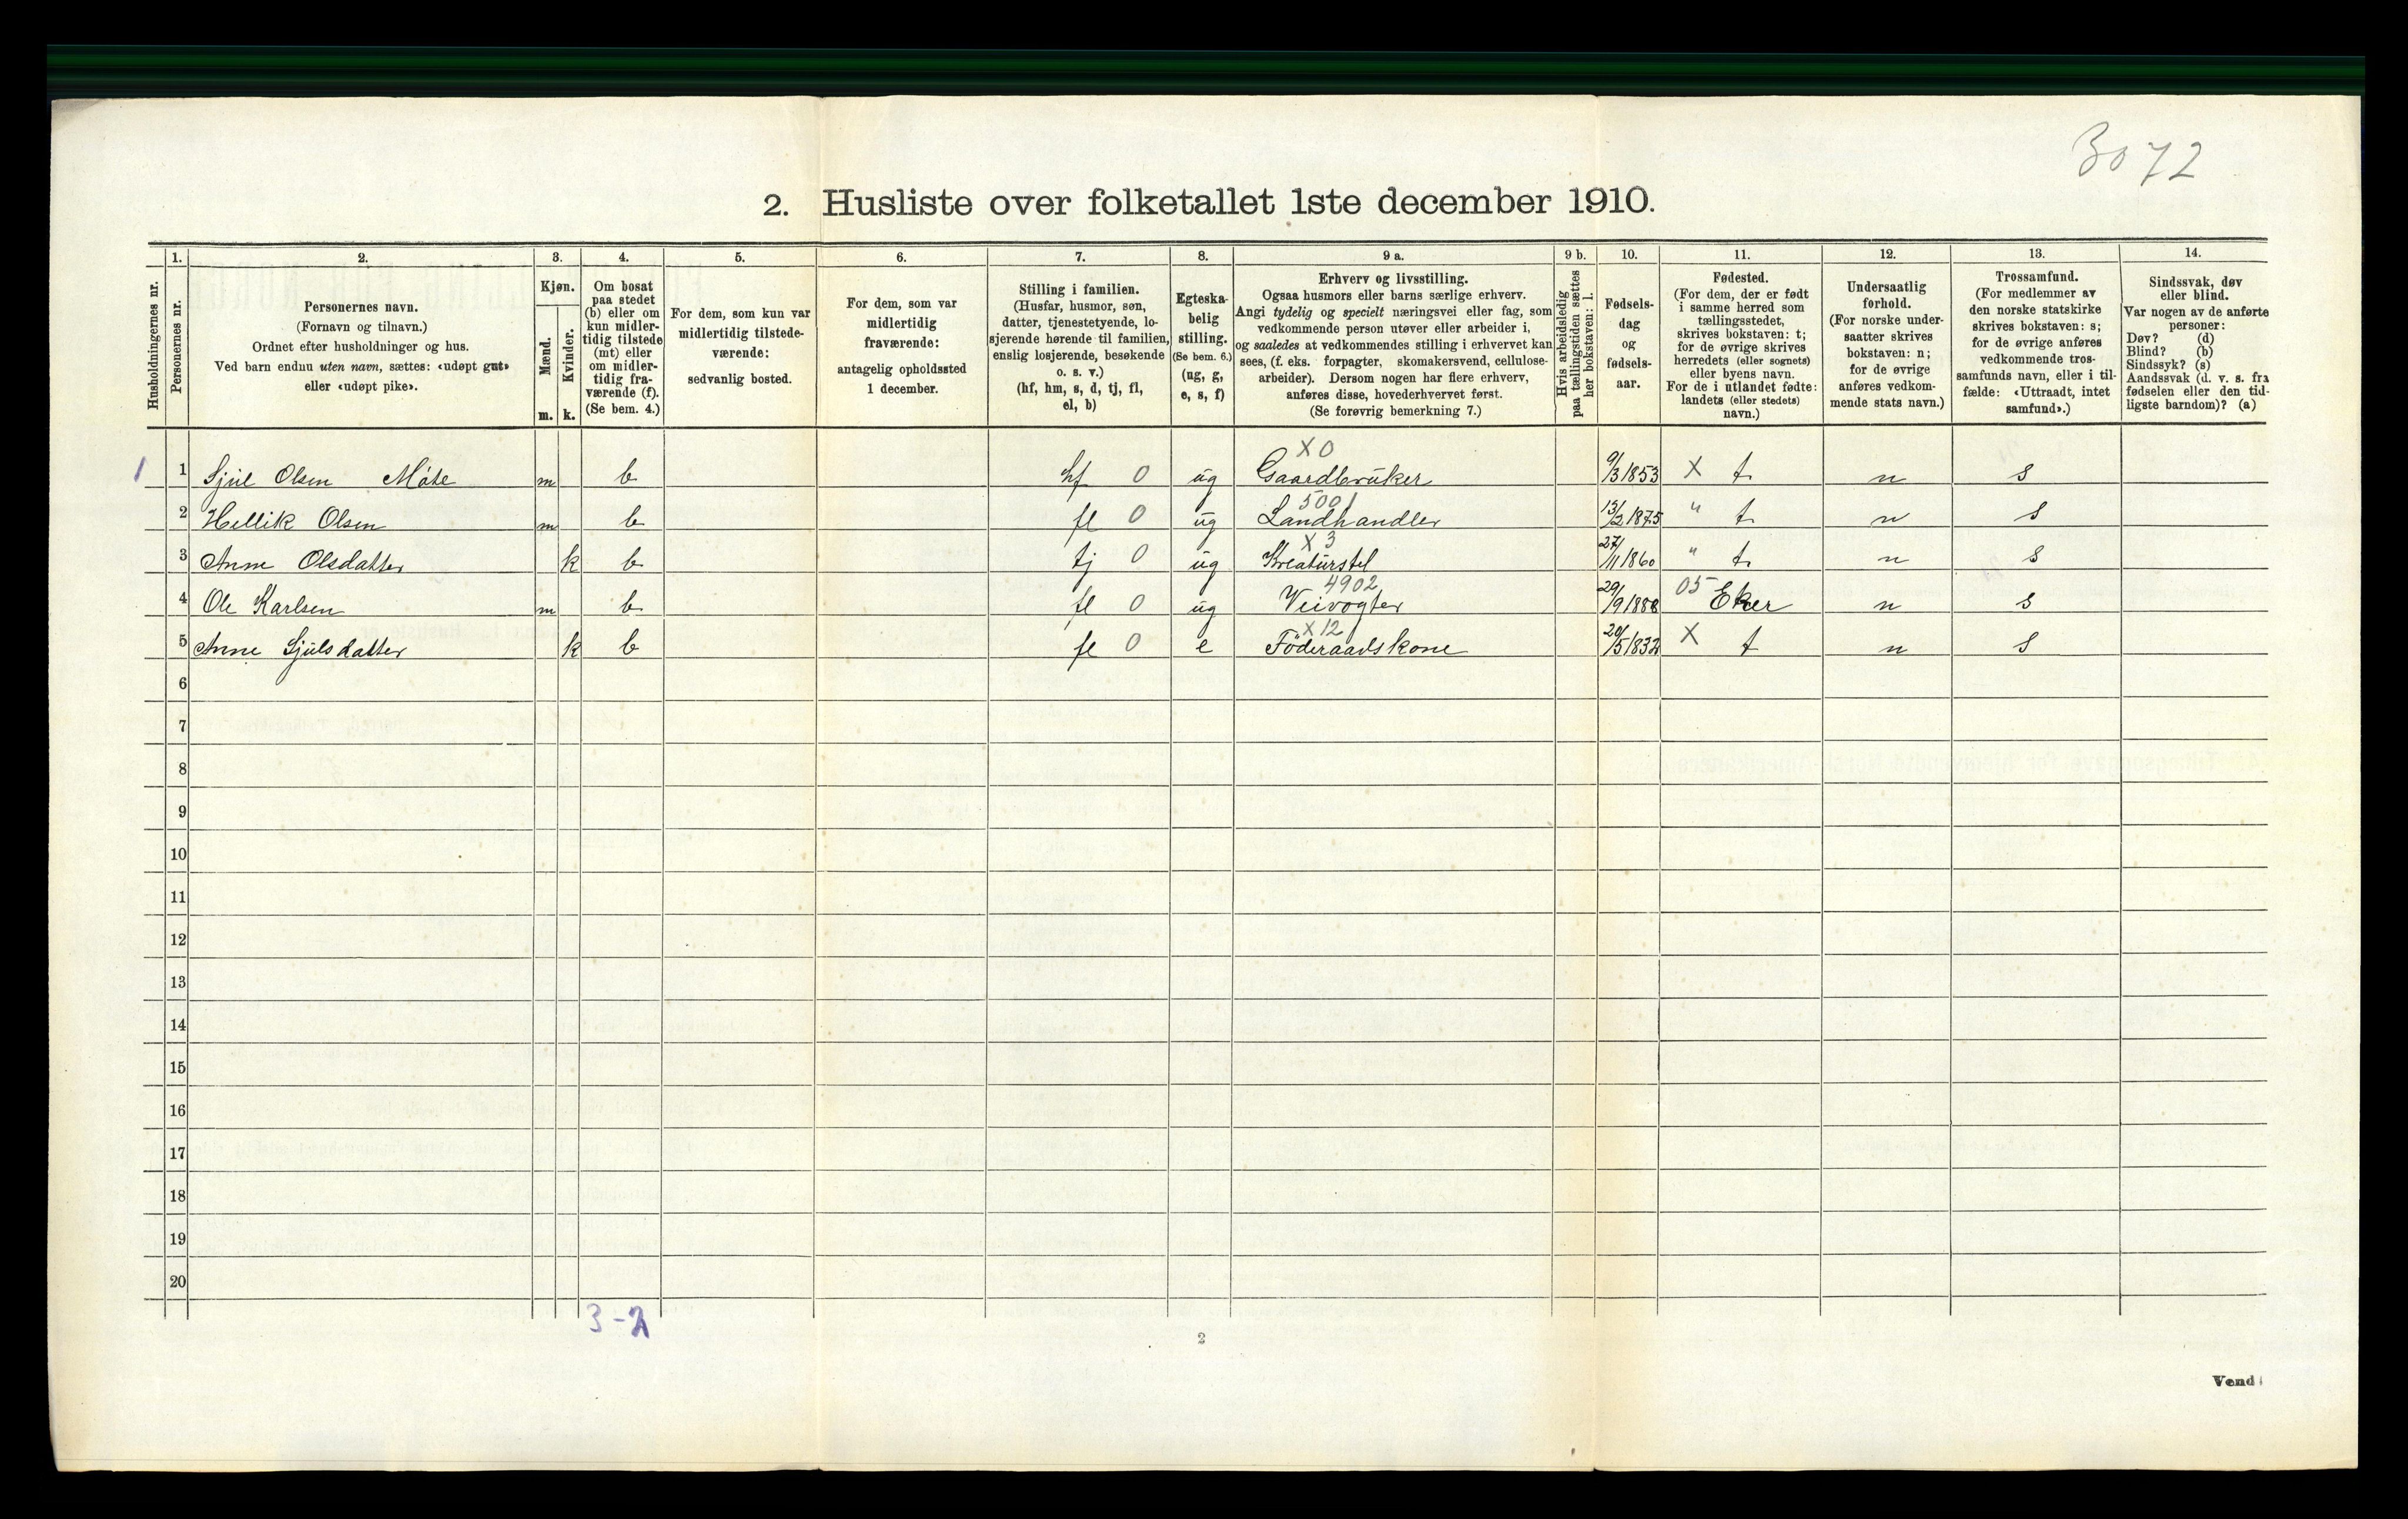 3072
2. Husliste over folketallet 1ste december 1910.
Husholdningernes nr.
1.
Personernes nr.
2.
Personernes navn.
(Fornavn og tilnavn.)
Ordnet efter husholdninger og hus.
Ved barn endnu uten navn, sættes: «udøpt gut»
eller «udøpt pike».
3.
Kjøn.
Mænd.
m.
Kvinder.
k.
4.
Om bosat
paa stedet
(b) eller om
kun midler-
tidig tilstede
(mt) eller
om midler-
tidig fra-
værende (f).
(Se bem. 4.)
5.
For dem, som kun var
midlertidig tilstede-
værende:
sedvanlig bosted.
6.
For dem, som var
midlertidig
fraværende:
antagelig opholdssted
1 december.
7.
Stilling i familien.
(Husfar, husmor, søn,
datter, tjenestetyende, lo-
sjerende hørende til familien,
enslig losjerende, besøkende
o. s. v.)
(hf, hm, s, d, tj, fl,
el, b)
8.
Egteska-
belig
stilling.
(Se bem. 6.)
(ug, g,
e, s, f)
9 a.
Erhverv og livsstilling.
Ogsaa husmors eller barns særlige erhverv.
Angi tydelig og specielt næringsvei eller fag, som
vedkommende person utøver eller arbeider i,
og saaledes at vedkommendes stilling i erhvervet kan
sees, (f. eks. forpagter, skomakersvend, cellulose-
arbeider). Dersom nogen har flere erhverv,
anføres disse, hovederhvervet først.
(Se forøvrig bemerkning 7.)
9 b.
Hvis arbeidsledig
paa tællingstiden sættes
her bokstaven: l.
10.
Fødsels-
dag
og
fødsels-
aar.
11.
Fødested.
(For dem, der er født
i samme herred som
tællingsstedet,
skrives bokstaven: t;
for de øvrige skrives
herredets (eller sognets)
eller byens navn.
For de i utlandet fødte:
landets (eller stedets)
navn.)
12.
Undersaatlig
forhold.
(For norske under-
saatter skrives
bokstaven: n;
for de øvrige
anføres vedkom-
mende stats navn.)
13.
Trossamfund.
(For medlemmer av
den norske statskirke
skrives bokstaven: s;
for de øvrige anføres
vedkommende tros-
samfunds navn, eller i til-
fælde: «Uttraadt, intet
samfund».)
14.
Sindssvak, døv
eller blind.
Var nogen av de anførte
personer:
Døv? (d)
Blind? (b)
Sindssyk? (s)
Aandssvak (d. v. s. fra
fødselen eller den tid-
ligste barndom)? (a)
X 0
1 1 Sjul Olsen Móte m b hf 0 ug Gaardbruker 9/3 1853 X t n s
5001
2 Hellik Olsen m b fl 0 ug Landhandler 13/2 1875 " t n s
X 3
3 Anne Olsdatter k b tj 0 ug Kreaturstel 27/11 1860 " t n s
4902
4 Ole Karlsen m b fl 0 ug Veivogter 29/9 1888 05 Eker n s
X 12
5 Anne Sjulsdatter k b fl 0 e Föderaadskone 20/5 1832 X t n s
6
7
8
9
10
11
12
13
14
15
16
17
18
19
20
3-2
2
Vend